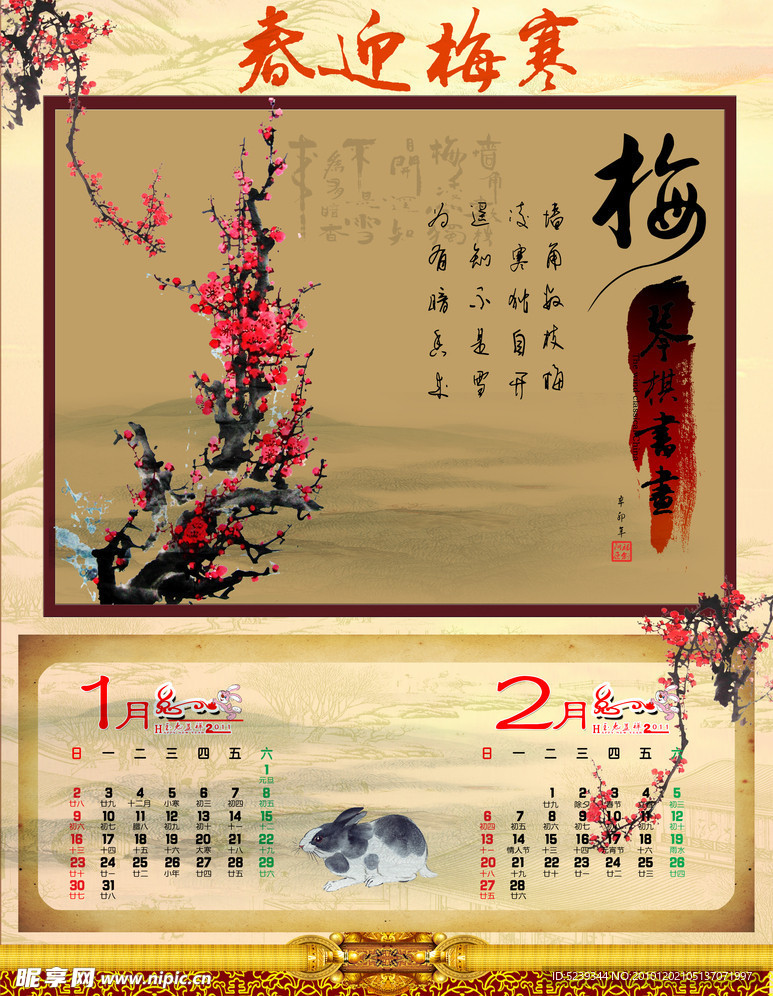 春迎梅寒
梅
琴棋書畫
墙角数枝梅
凌寒独自开
遥知不是雪
为有暗香来
辛卯年
1月
2011
日 一 二 三 四 五 六
1
元旦
2 3 4 5 6 7 8
廿八 廿九 十二月 小寒 初三 初四 初五
9 10 11 12 13 14 15
初六 初七 腊八 初九 初十 十一 十二
16 17 18 19 20 21 22
十三 十四 十五 十六 大寒 十八 十九
23 24 25 26 27 28 29
二十 廿一 廿二 小年 廿四 廿五 廿六
30 31
廿七 廿八
2月
2011
日 一 二 三 四 五 六
1 2 3 4 5
廿九 除夕 春节 初三
6 7 8 9 10 11 12
初四 初五 初六 初七 初九 初十
13 14 15 16 17 18 19
十一 情人节 十三 十四 元宵节 十六 雨水
20 21 22 23 24 25 26
十八 十九 二十 廿一 廿二 廿三 廿四
27 28
廿五 廿六
昵享网 www.nipic.cn
ID:5239344 NO:20101202105137071997